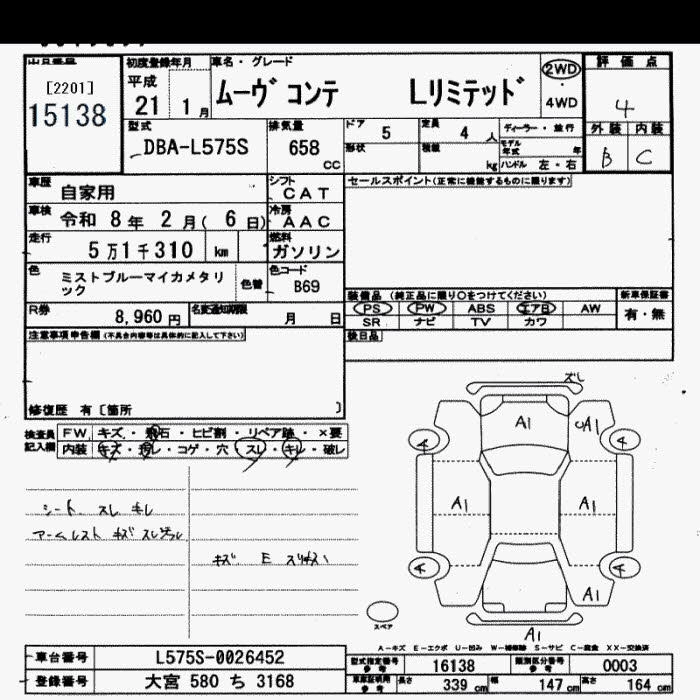 初度登録年月 車名・グレード 評価点
[2201] 平成 ムーヴ コンテ Lリミテッド 2WD 4
15138 21 1月 4WD
型式 排気量 ドア 5 定員 4 人 ディーラー・並行 外装 内装
DBA-L575S 658 cc 形状 積載 kg モデル年式 年 B C
ハンドル 左・右
車歴 自家用 シフト CAT セールスポイント(正常に機能するものに限ります)
車検 令和 8年 2月( 6日) 冷房 AAC
走行 5万1千310 km 燃料 ガソリン
色 ミストブルーマイカメタリック 色替 色コード B69
装備品 (純正品に限り○をつけてください) 新車保証書
R券 8,960円 名変通知期限 月 日 PS PW ABS エアB AW 有・無
SR ナビ TV カワ
注意事項申告欄(不具合内容等は具体的に記入して下さい) 後日品
修復歴 有〔箇所 〕
ズレ
検査員記入欄 FW キズ・飛石・ヒビ割・リペア跡・×要
内装 キズ・汚レ・コゲ・穴・スレ・キレ・破レ
A1 UA1
4 4
A1 A1
シート スレ キレ
アームレスト キズ
キズ E
4 4
A1
スペア
A1
A-キズ E-エクボ U-凹み W-補修跡 S-サビ C-腐食 XX-交換済
車台番号 L575S-0026452 型式指定番号 参考 16138 類別区分番号 参考 0003
登録番号 大宮 580 ち 3168 車庫証明用 参考 長さ 339 cm 幅 147 cm 高さ 164 cm